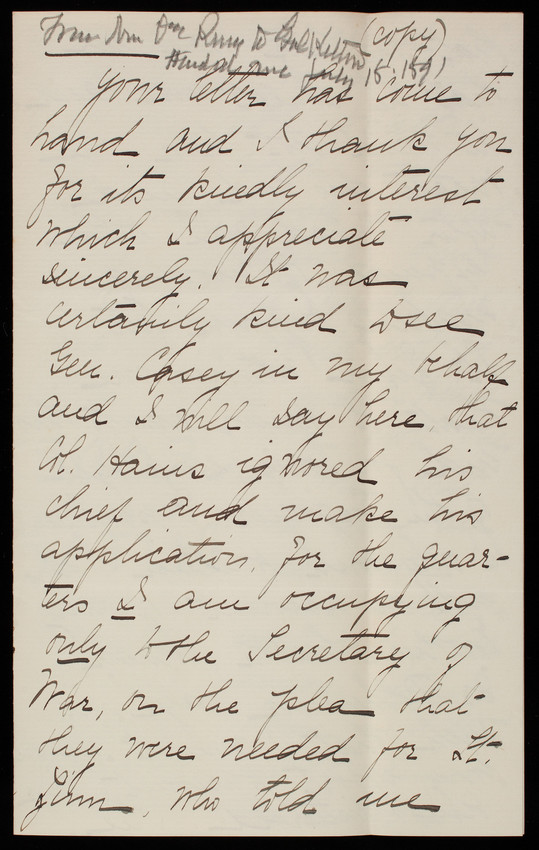 From (copy)
July 15, 1891
Your letter has come to
hand and I thank you
for its kindly interest
which I appreciate
sincerely. It was
certainly kind to see
Gen. Casey in my behalf
and I will say here, that
Col. Hains ignored his
chief and make his
application, for the quar-
ters I am occupying
only to the Secretary of
War, on the plea that
they were needed for Lt.
, who told me